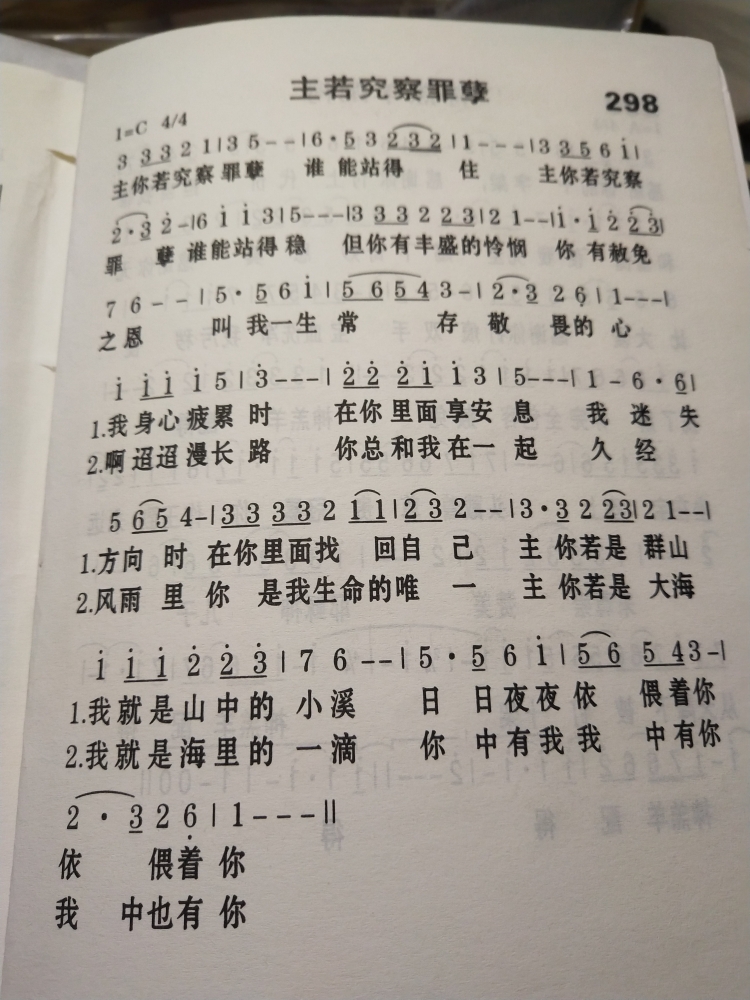 主若究察罪孽
298
1=C 4/4
3 3 3 2 1 | 3 5 - - | 6 · 5 3 2 3 2 | 1 - - - | 3 3 5 6 i |
主你若究察 罪孽 谁 能站得 住 主你若究察
2 · 3 2 - | 6 i i 3 | 5 - - - | 3 3 3 2 2 3 | 2 1 - - | i · i 2 2 3 |
罪 孽 谁能站得 稳 但你有丰盛的怜悯 你 有赦免
7 6 - - | 5 · 5 6 i | 5 6 5 4 3 - | 2 · 3 2 6 | 1 - - - |
之恩 叫 我一生 常 存 敬 畏的 心
i i i i 5 | 3 - - - | 2 2 2 i i 3 | 5 - - - | 1 - 6 · 6 |
1.我身心疲累 时 在你里面享安 息 我 迷 失
2.啊迢迢漫长 路 你总和我在一 起 久 经
5 6 5 4 - | 3 3 3 3 2 1 1 | 2 3 2 - - | 3 · 3 2 2 3 | 2 1 - - |
1.方向 时 在你里面找 回自 己 主 你若是 群山
2.风雨 里 你 是我生命的唯 一 主 你若是 大海
i i i 2 2 3 | 7 6 - - | 5 · 5 6 i | 5 6 5 4 3 - |
1.我就是山中的 小溪 日 日夜夜依 偎着你
2.我就是海里的 一滴 你 中有我我 中有你
2 · 3 2 6 | 1 - - - ||
依 偎着 你
我 中也有 你